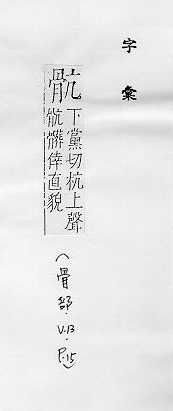 字彙
骯
下黨切杭上聲
骯髒倖直貌
(骨部. V.13. P.15)